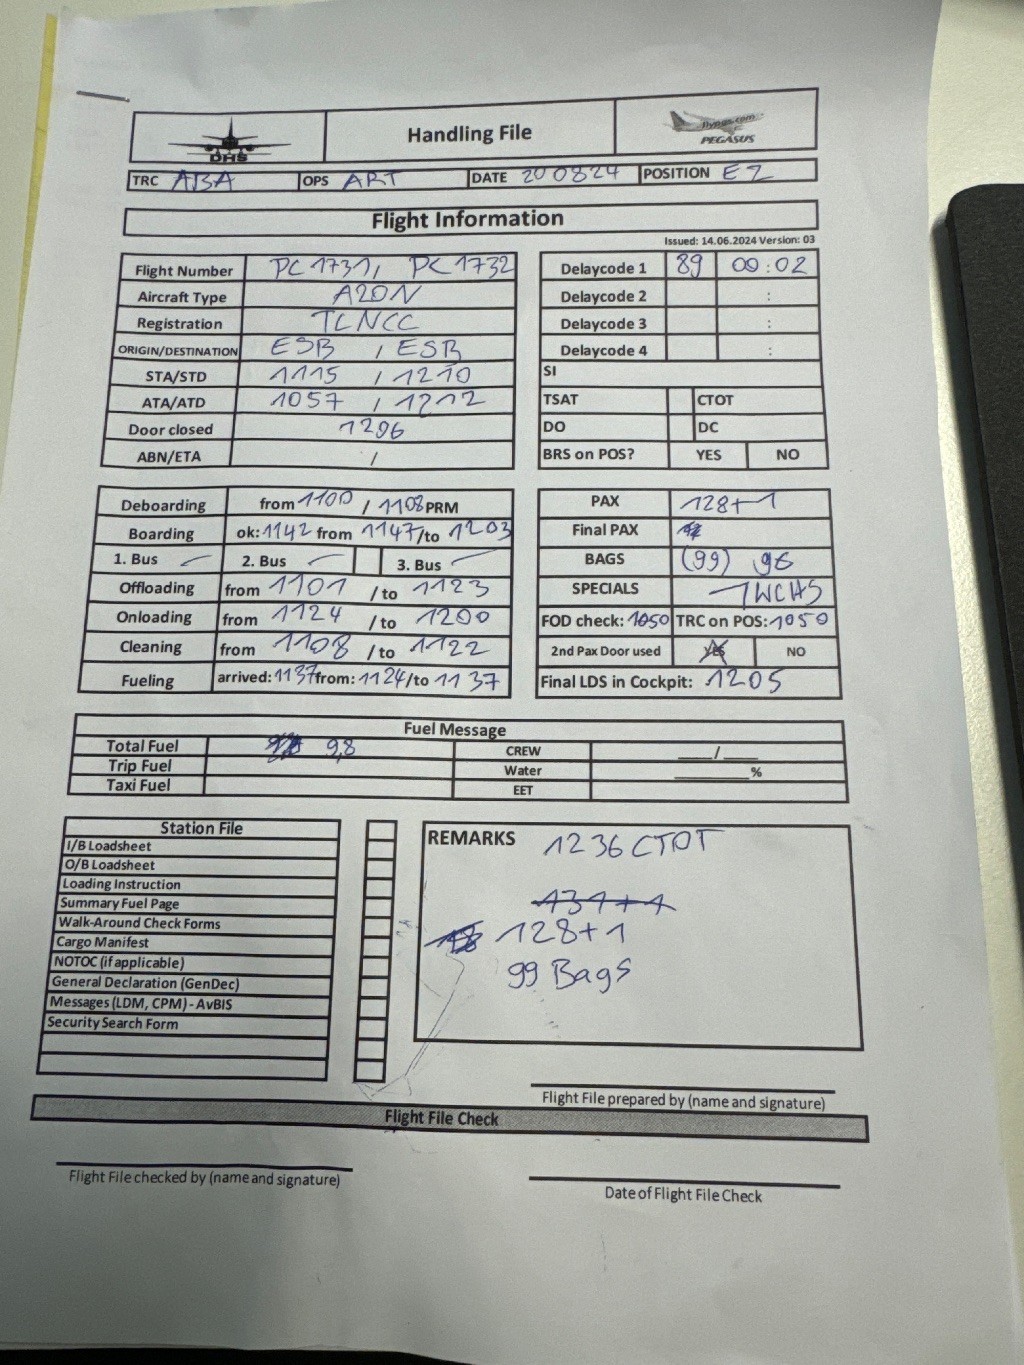 DHS
Handling File
flypgs.com
PEGASUS
TRC ABA OPS ART DATE 200824 POSITION E2
Flight Information
Issued: 14.06.2024 Version: 03
Flight Number PC 1731, PC 1732
Aircraft Type A20N
Registration TCNCC
ORIGIN/DESTINATION ESB / ESB
STA/STD 1115 / 1210
ATA/ATD 1057 / 1212
Door closed 1206
ABN/ETA /
Delaycode 1 89 00:02
Delaycode 2 :
Delaycode 3 :
Delaycode 4 :
SI
TSAT CTOT
DO DC
BRS on POS? YES NO
Deboarding from 1100 / 1108 PRM
Boarding ok: 1142 from 1147/to 1203
1. Bus 2. Bus 3. Bus
Offloading from 1101 /to 1123
Onloading from 1124 /to 1200
Cleaning from 1108 /to 1122
Fueling arrived: 1137 from: 1124/to 1137
PAX 128+1
Final PAX
BAGS (99) 96
SPECIALS 1WCHS
FOD check: 1050 TRC on POS: 1050
2nd Pax Door used YES NO
Final LDS in Cockpit: 1205
Fuel Message
Total Fuel 9,8 CREW ___/___
Trip Fuel Water ______%
Taxi Fuel EET
Station File
I/B Loadsheet
O/B Loadsheet
Loading Instruction
Summary Fuel Page
Walk-Around Check Forms
Cargo Manifest
NOTOC (if applicable)
General Declaration (GenDec)
Messages (LDM, CPM) - AvBIS
Security Search Form
REMARKS 1236 CTOT
131+1
128+1
99 Bags
Flight File prepared by (name and signature)
Flight File Check
Flight File checked by (name and signature)
Date of Flight File Check